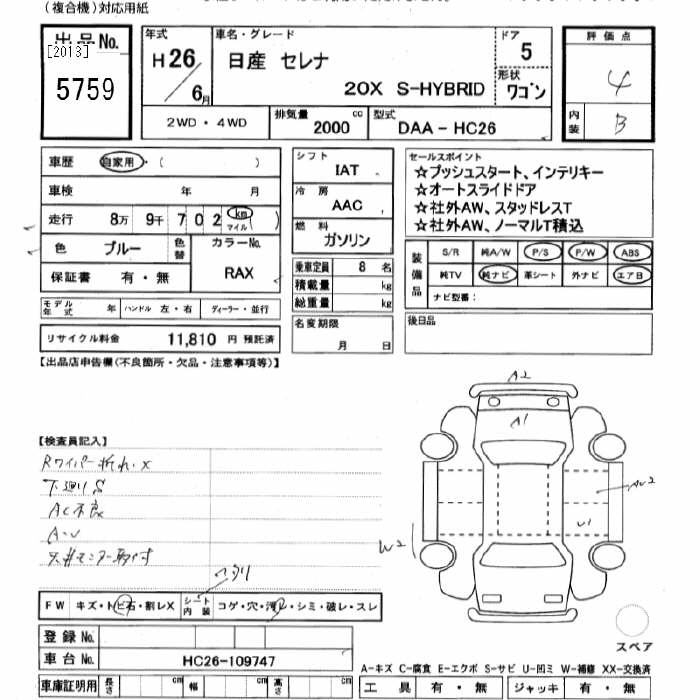 (複合機)対応用紙
出品No.
[2013]
5759
年式
H26/6月
車名・グレード
日産 セレナ
20X S-HYBRID
ドア
5
形状
ワゴン
評価点
4
内装
B
2WD・4WD
排気量
2000 cc
型式
DAA-HC26
車歴 自家用・( )
車検 年 月
走行 8万 9千 702 km マイル ( )
色 ブルー
色替
カラーNo.
RAX
保証書 有・無
モデル年式 年
ハンドル 左・右
ディーラー・並行
リサイクル料金 11,810 円 預託済
シフト
IAT
冷房
AAC
燃料
ガソリン
乗車定員 8 名
積載量 kg
総重量 kg
名変期限
月 日
セールスポイント
☆プッシュスタート、インテリキー
☆オートスライドドア
☆社外AW、スタッドレスT
☆社外AW、ノーマルT積込
装備品
S/R 純A/W P/S P/W ABS
純TV 純ナビ 革シート 外ナビ エアB
ナビ型番:
後日品
【出品店申告欄(不良箇所・欠品・注意事項等)】
【検査員記入】
Rワイパー折れ・X
下廻りS
AC不良
A・U
天井モニター取付
A2
A1
AU2
U1
W2
FW キズ・トビ石・割レX
シート内装
コゲ・穴・汚レ・シミ・破レ・スレ
登録No.
車台No. HC26-109747
車庫証明用 長さ cm 幅 cm 高さ cm
スペア
A-キズ C-腐食 E-エクボ S-サビ U-凹ミ W-補修 XX-交換済
工具 有・無 ジャッキ 有・無